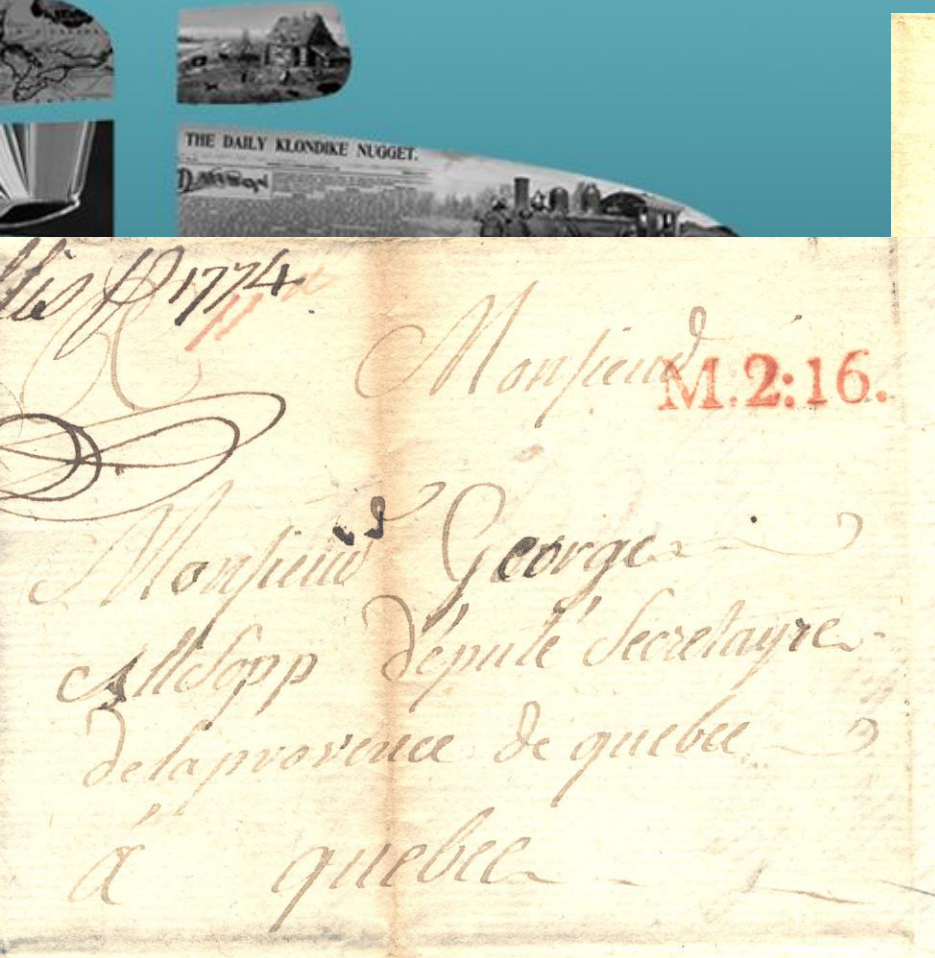 THE DAILY KLONDIKE NUGGET.
DAWSON
1774
Monsieur
M.2:16.
Monsieur George
Allsopp député Secretayre
de la provence de quebec
a quebec